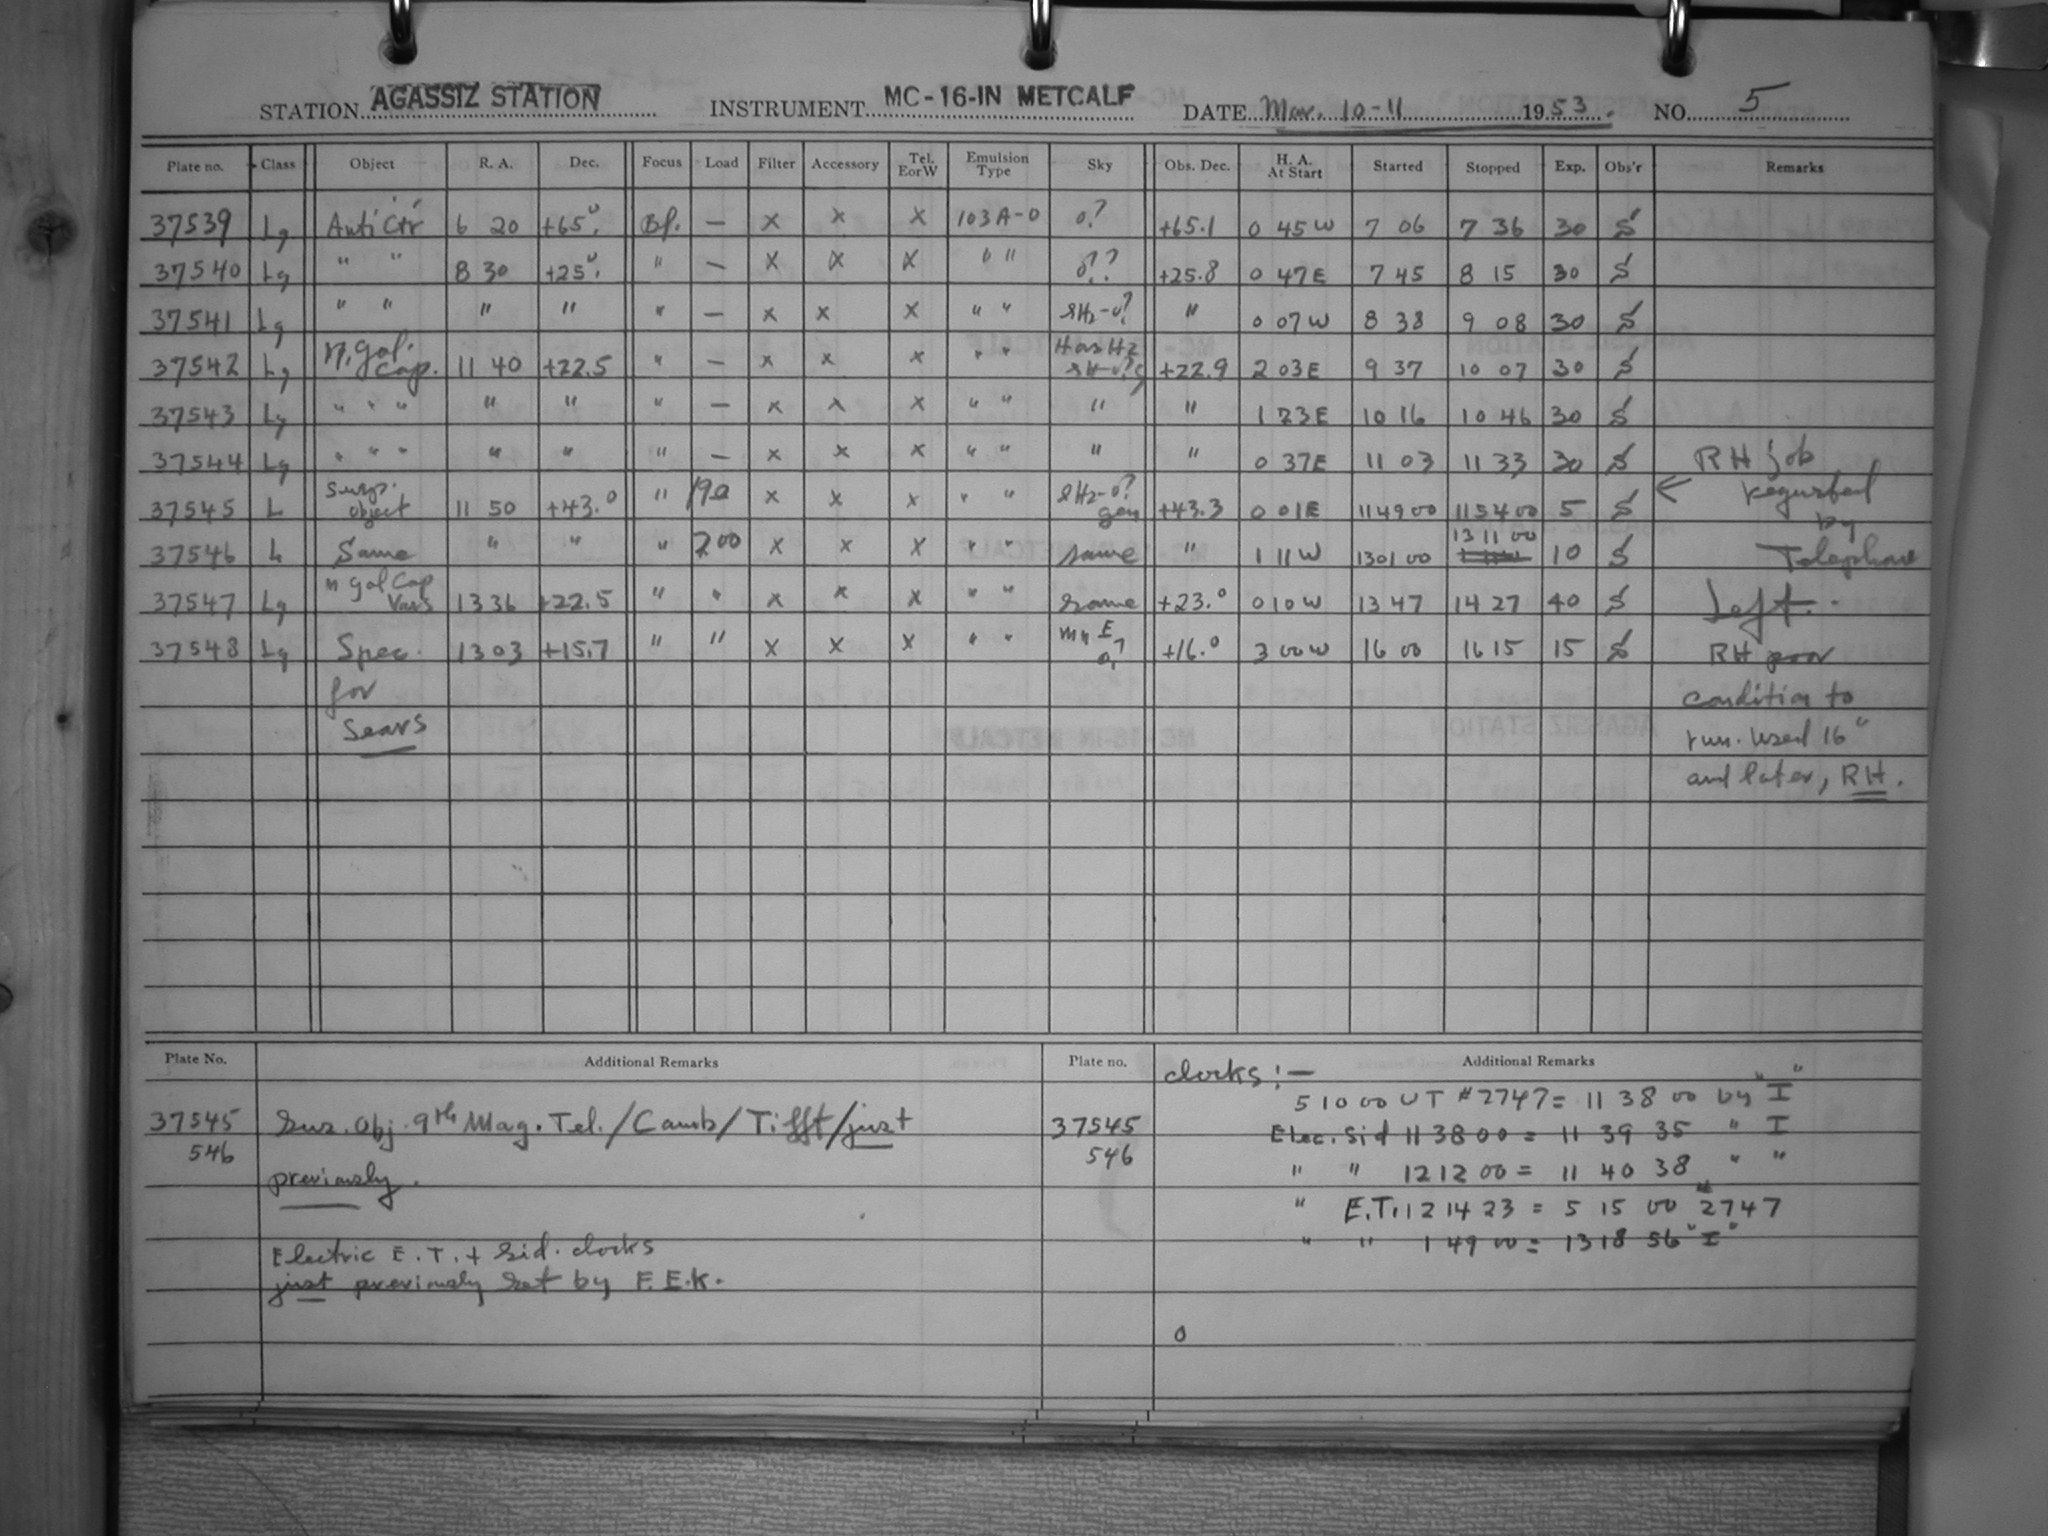 STATION AGASSIZ STATION INSTRUMENT MC-16-IN METCALF DATE Mar. 10-11 1953. NO. 5
Plate no. Class Object R. A. Dec. Focus Load Filter Accessory Tel. E or W Emulsion Type Sky Obs. Dec. H. A. At Start Started Stopped Exp. Obs'r Remarks
37539 Lg Anti Ctr 6 20 +65°. Bf. — x x x 103A-O o? +65.1 0 45 W 7 06 7 36 30 S
37540 Lg " " 8 30 +25°. " — x x x " " o?? +25.8 0 47 E 7 45 8 15 30 S
37541 Lg " " " " " — x x x " " SHz-o? " 0 07 W 8 38 9 08 30 S
37542 Lg N. gal. Cap. 11 40 +22.5 " — x x x " " Has Hz +22.9 2 03 E 9 37 10 07 30 S
37543 Lg " " " " " " — x x x " " " " 1 23 E 10 16 10 46 30 S
37544 Lg " " " " " " — x x x " " " " 0 37 E 11 03 11 33 30 S RH job
37545 L Susp. object 11 50 +43.0 " 190 x x x " " SHz-o? gen +43.3 0 01 E 11 49 00 11 54 00 5 S ← requested by
37546 L Same " " " 200 x x x " " same " 1 11 W 13 01 00 13 11 00 10 S Telephone
37547 Lg N gal Cap Vars 13 36 +22.5 " " x x x " " same +23.0 0 10 W 13 47 14 27 40 S Left.
37548 Lg Spec. 13 03 +15.7 " " x x x " " +16.0 3 00 W 16 00 16 15 15 S RH poor
for condition to
Sears run. Used 16"
and later, RH.
Plate No. Additional Remarks Plate no. Additional Remarks
clocks:—
5 10 00 UT #2747 = 11 38 00 by "I"
37545 Sus. Obj. 9th Mag. Tel./Camb/Tifft/just 37545 Elec. Sid 11 38 00 = 11 39 35 " I
546 546 " " 12 12 00 = 11 40 38 " "
previously. " E.T. 12 14 23 = 5 15 00 2747
Electric E.T. + Sid. clocks " " 1 49 00 = 13 18 56 "I"
just previously set by F.E.K.
0